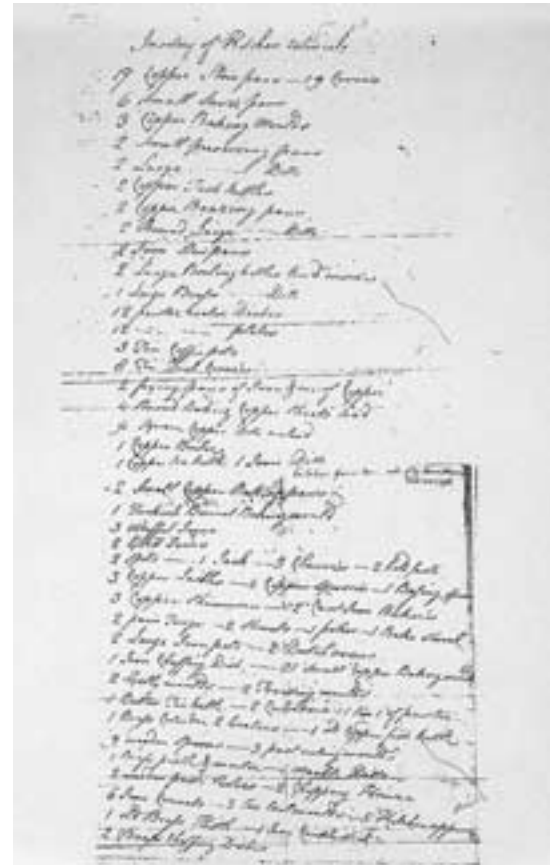 Inventory of Kitchen utensils
19 Copper Stew pans — 19 Covers
6 Small Sauce pans
3 Copper Baking Moulds
2 Small preserving pans
2 Large — Ditto
2 Copper Fish kettles
2 Copper Brazing pans
2 Round Large — Ditto
2 Iron Stew pans
2 Large Boiling kettles tin'd inside
1 Large Brass — Ditto
12 pewter water Dishes
12 — — plates
3 Tin Coffee pots
8 Tin Dish Covers
2 frying pans of Iron & one of Copper
4 Round Baking Copper Sheets tin'd
4 Square Copper Ditto untin'd
1 Copper Boiler
1 Copper tea kettle 1 Iron Ditto
2 Small Copper Baking pans
1 Turk's Bonnet Baking mould
3 Waffel Irons
2 Grid Irons
2 Spits — 1 Jack — 3 Cleavers — 2 Hold fasts
3 Copper Ladles — 4 Copper Spoons — 1 Basting spoon
3 Copper Skimmers — 2 Cast Iron Bakers
2 pair Tongs — 2 Shovels — 1 poker — 1 Bake Shovel
2 Large Iron pots — 2 Dutch ovens
1 Iron Chaffing Dish — 21 small Copper Baking moulds
2 Gelly moulds — 2 Freising moulds
1 Butter Tin kettle — 2 Culinders 1 tin 1 of pewter
1 Brass Culinder 2 Graters — 1 old Copper fish kettle
9 wooden Spoons — 3 past cuting moulds
1 Brass pestle & mortar — 1 marble Ditto
2 wooden paste Rolers — 2 Chopping Knives
6 Iron Crevets — 3 tin tart moulds — 5 Kitchen apperns
1 old Brass Kettle — 1 Iron Candle stick
2 Brass Chaffing Dishes